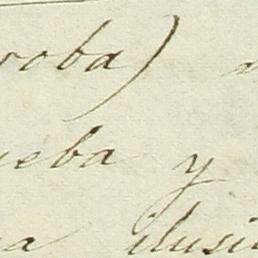 roba)
ueba y
a ilusi